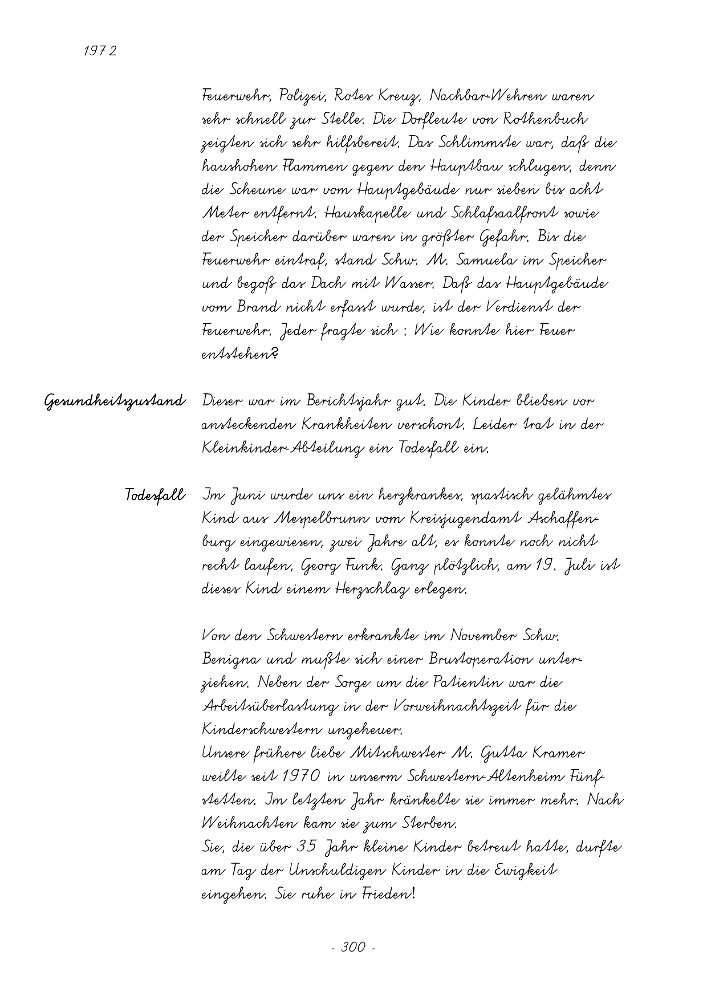 1972
Feuerwehr, Polizei, Rotes Kreuz, Nachbar-Wehren waren
sehr schnell zur Stelle. Die Dorfleute von Rothenbuch
zeigten sich sehr hilfsbereit. Das Schlimmste war, daß die
haushohen Flammen gegen den Hauptbau schlugen, denn
die Scheune war vom Hauptgebäude nur sieben bis acht
Meter entfernt. Hauskapelle und Schlafsaalfront sowie
der Speicher darüber waren in größter Gefahr. Bis die
Feuerwehr eintraf, stand Schw. M. Samuela im Speicher
und begoß das Dach mit Wasser. Daß das Hauptgebäude
vom Brand nicht erfasst wurde, ist der Verdienst der
Feuerwehr. Jeder fragte sich : Wie konnte hier Feuer
entstehen?
Gesundheitszustand Dieser war im Berichtsjahr gut. Die Kinder blieben vor
ansteckenden Krankheiten verschont. Leider trat in der
Kleinkinder-Abteilung ein Todesfall ein.
Todesfall Im Juni wurde uns ein herzkrankes, spastisch gelähmtes
Kind aus Mespelbrunn vom Kreisjugendamt Aschaffen-
burg eingewiesen, zwei Jahre alt, es konnte noch nicht
recht laufen, Georg Funk. Ganz plötzlich, am 19. Juli ist
dieses Kind einem Herzschlag erlegen.
Von den Schwestern erkrankte im November Schw.
Benigna und mußte sich einer Brustoperation unter-
ziehen. Neben der Sorge um die Patientin war die
Arbeitsüberlastung in der Vorweihnachtszeit für die
Kinderschwestern ungeheuer.
Unsere frühere liebe Mitschwester M. Gutta Kramer
weilte seit 1970 in unserm Schwestern-Altenheim Fünf-
stetten. Im letzten Jahr kränkelte sie immer mehr. Nach
Weihnachten kam sie zum Sterben.
Sie, die über 35 Jahr kleine Kinder betreut hatte, durfte
am Tag der Unschuldigen Kinder in die Ewigkeit
eingehen. Sie ruhe in Frieden!
- 300 -